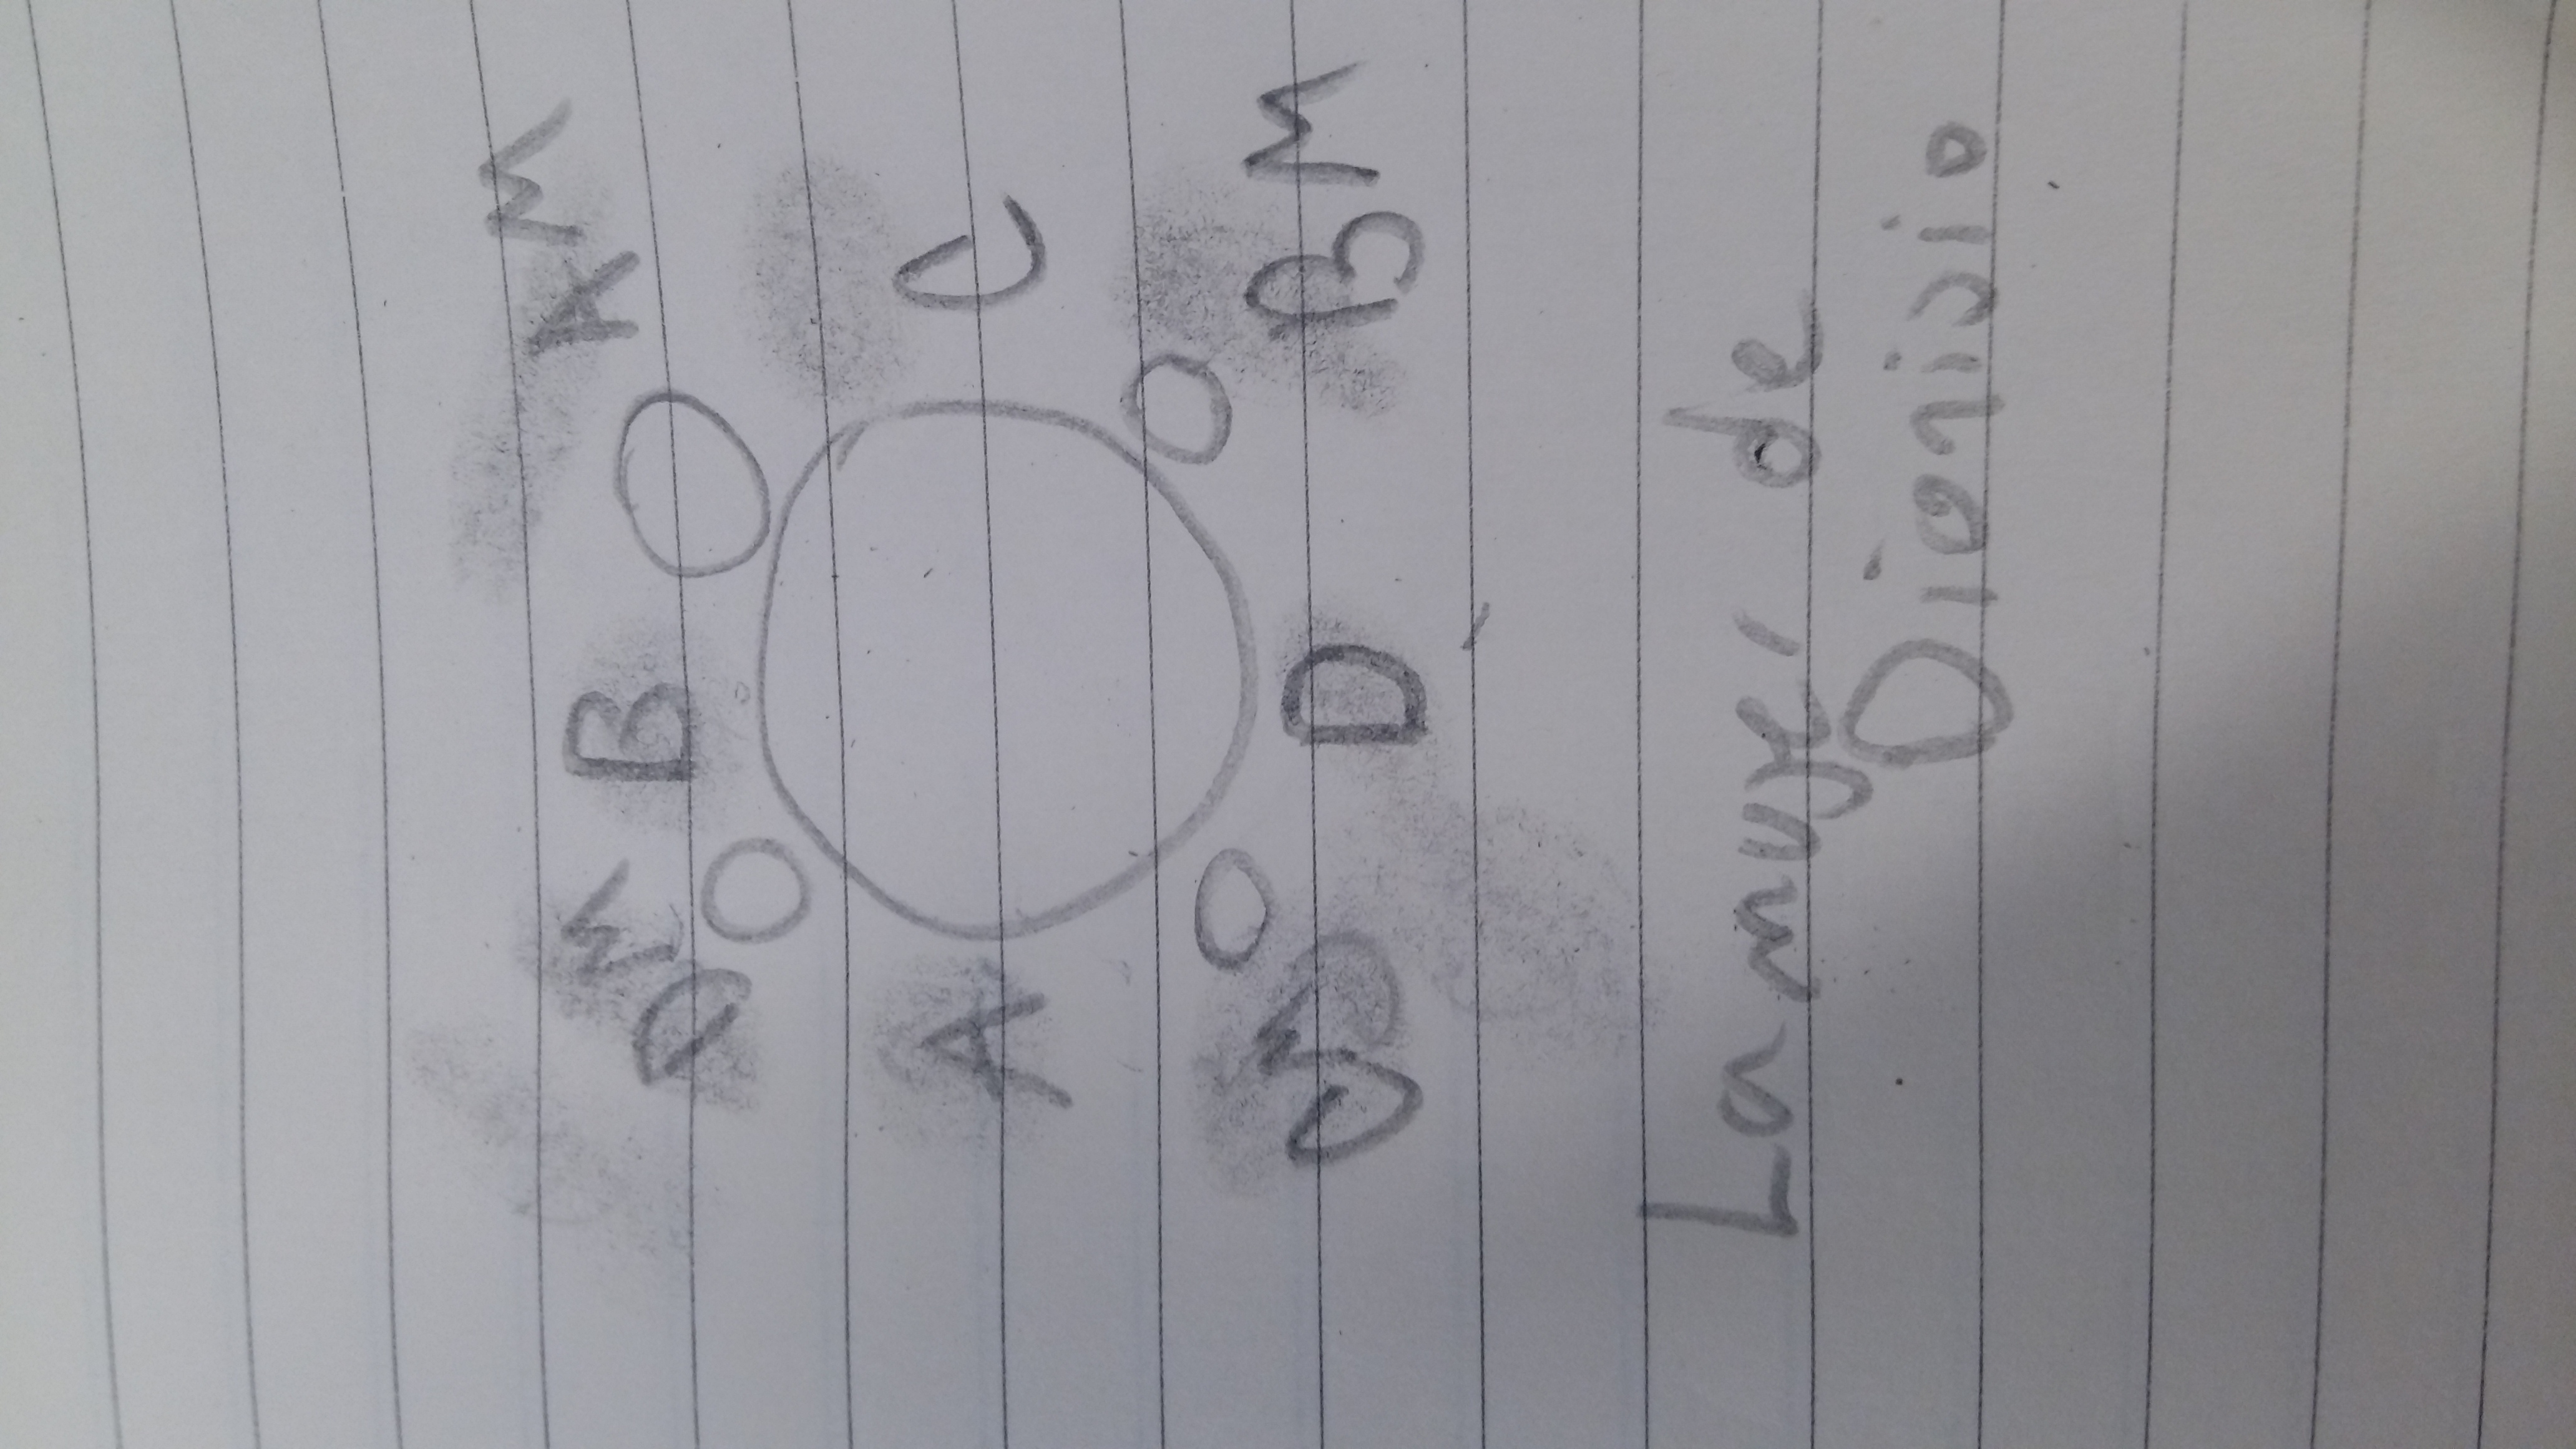 AM
DM B
A C
CM D BM
La mujer de
Dionisio